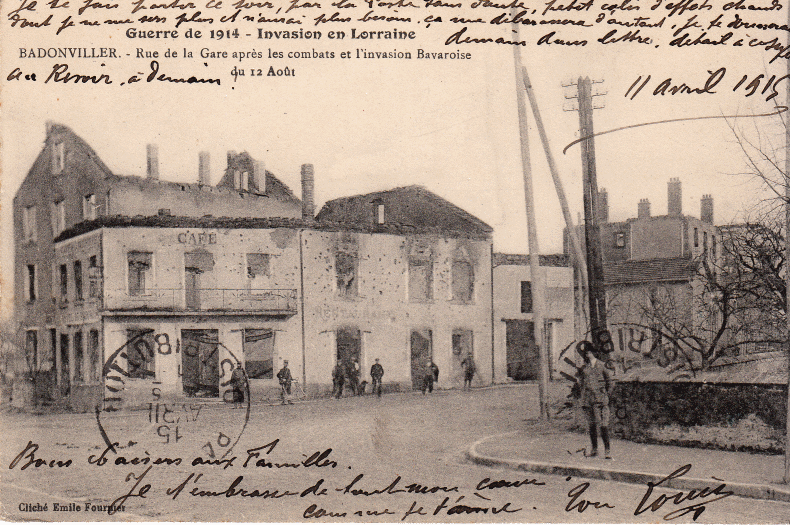 Je te fais partir ce soir, par la Poste sans doute, petit colis d'effets chauds
dont je ne me sers plus et n'aurai plus besoin. ça me débarrassera d'autant. Je te donnerai
Guerre de 1914 - Invasion en Lorraine
demain dans lettre, détail à ce sujet
BADONVILLER. - Rue de la Gare après les combats et l'invasion Bavaroise
du 12 Août
au Revoir, à demain.
11 avril 1915
CAFÉ
RESTAURANT
DISTRIBUTION
15
AVRIL
Bons baisers aux Familles.
Je t'embrasse de tout mon cœur
comme je t'aime. Ton Louis
Cliché Emile Fournier